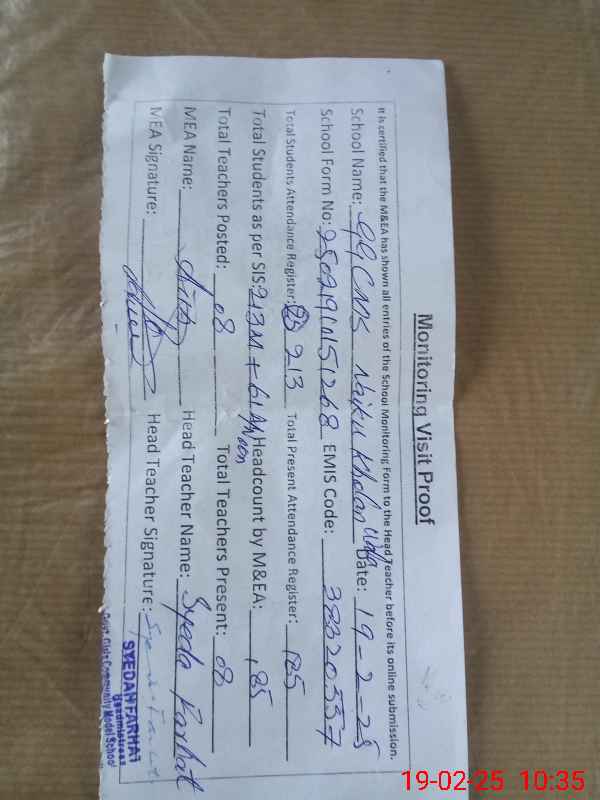 Monitoring Visit Proof
It is certified that the M&EA has shown all entries of the School Monitoring Form to the Head Teacher before its online submission.
School Name: GGCMS Naiku Khalan Wala Date: 19-2-25
School Form No: EMIS Code: 38320557
Total Students Attendance Register: 213 Total Present Attendance Register: 185
Total Students as per SIS: 213M + 61 Headcount by M&EA: 185
Total Teachers Posted: 08 Total Teachers Present: 08
MEA Name: Head Teacher Name: Syeda Farhat
MEA Signature: Head Teacher Signature:
SYEDAH FARHAT
Headmistress
Govt. Girls Community Model School
19-02-25 10:35